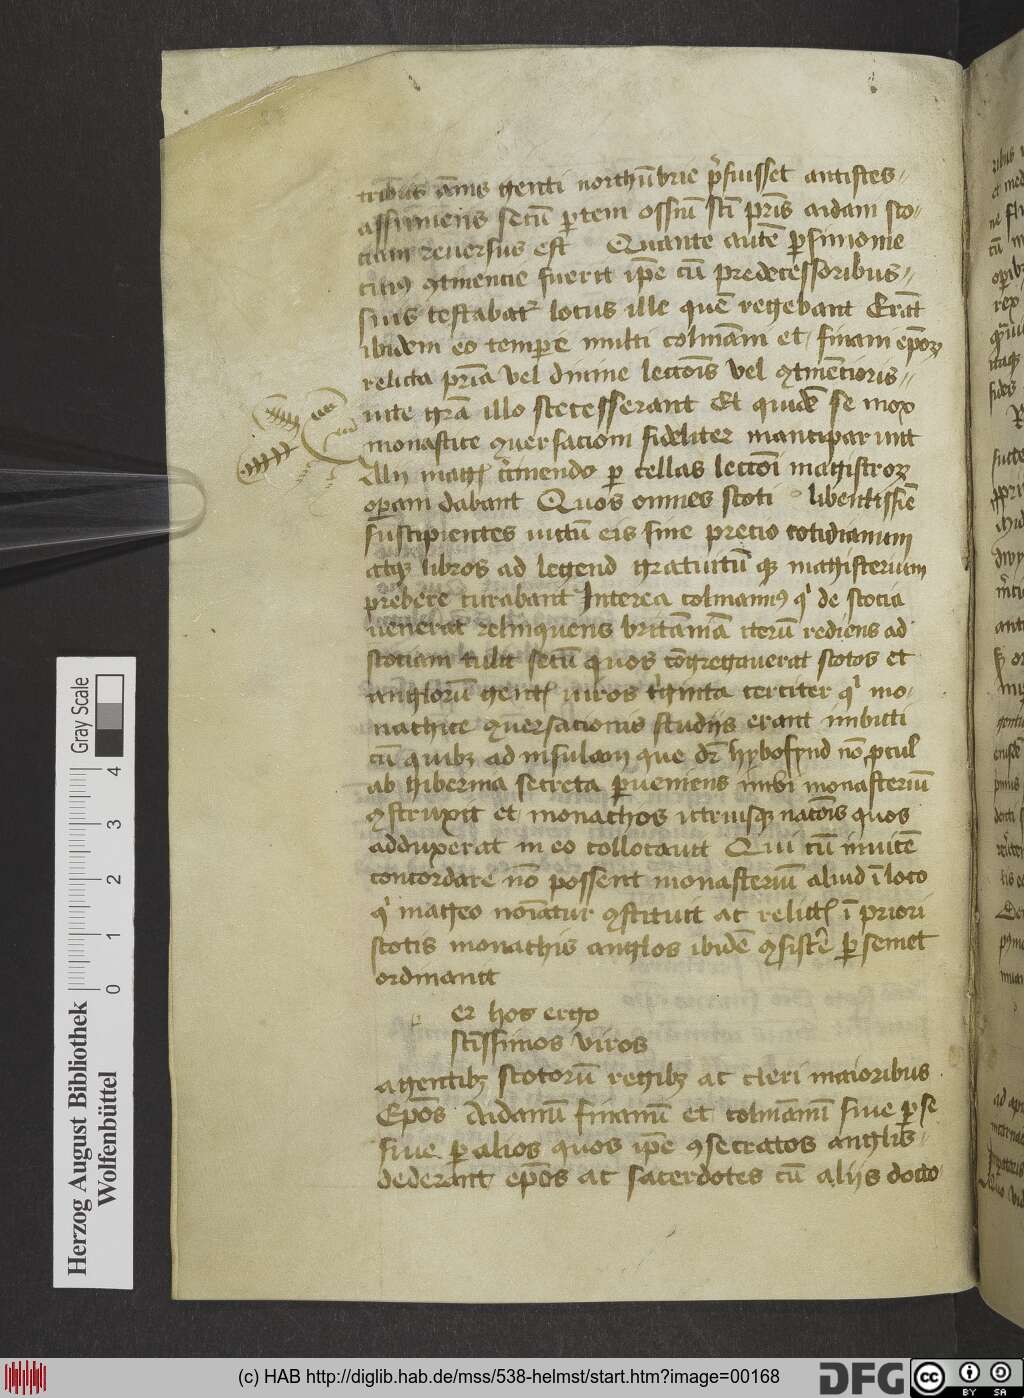 tribus ānis genti northūbrie p̄fuisset antistes
assumens secū p̄tem ossiū sc̄i pr̄is aidani sco
ciam reuersus est Quante autē ꝑsimonie
ꝯtinencie fuerit ip̄e cū predecessoribus
suis testabat᷑ locus ille quē regebant Erāt
ibidem eo tempore multi colmāni et finani ep̄oꝝ
relicta pr̄ia vel diuine lectōis vel ꝯtinēcioris
uite grā illo secesserant Et quidē se mox
monastice ꝯuersacioni fideliter mancipar unt
Alij maḡ c̄cueundo per cellas lectōi magistroꝝ
operam dabant Quos omnes scoti libentissīe
suscipientes uictū eis sine precio cotidianum
atqꝫ libros ad legend gratuitū qꝫ magisterium
prebere curabant Interea colmanꝰ qͥ de scocia
uenerat relinquens britāniā iterū rediens ad
scociam tulit secū quos cōgregauerat scotos et
anglorū gent uiros tͥginta circiter qͥ mo
nachice ꝯuersacionis studijs erant imbuti
cū quibꝫ ad insulam que dr̄ hybofynd nō ꝓcul
ab hibernia secreta ꝑueniens inibi monasteriū
ꝯstruxit et monachos utriusqꝫ nacōis quos
adduxerat in eo collocauit Qui cū inuicē
concordare nō possent monasteriū aliud ī loco
qͥ mageo noīatur ꝯstituit ac relict ī priori
scotis monachis anglos ibidē ꝯsistēe ꝑ semet
ordinauit
er hos ergo
sc̄issimos viros
agentibꝫ scotorū regibꝫ ac cleri maioribus
Ep̄os Aidanū finanū et colmānū siue ꝑ se
siue ꝑ alios quos ip̄e ꝯsecratos anglis
dederant ep̄os ac sacerdotes cū alijs docto
Gray Scale
0 1 2 3 4
Herzog August Bibliothek
Wolfenbüttel
(c) HAB http://diglib.hab.de/mss/538-helmst/start.htm?image=00168
DFG
cc BY SA